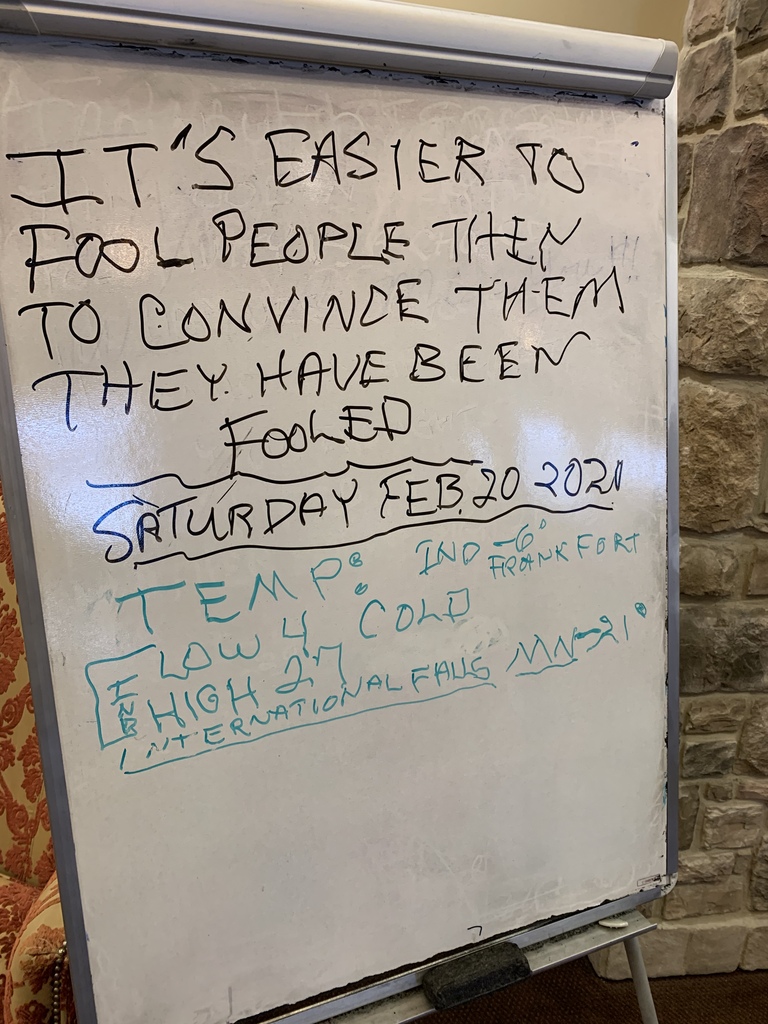 IT'S EASIER TO
FOOL PEOPLE THEN
TO CONVINCE THEM
THEY HAVE BEEN
FOOLED
SATURDAY FEB. 20 2021
TEMP: IND -6°
FRANKFORT
LOW 4 COLD
IND HIGH 27
INTERNATIONAL FALLS MN -21°